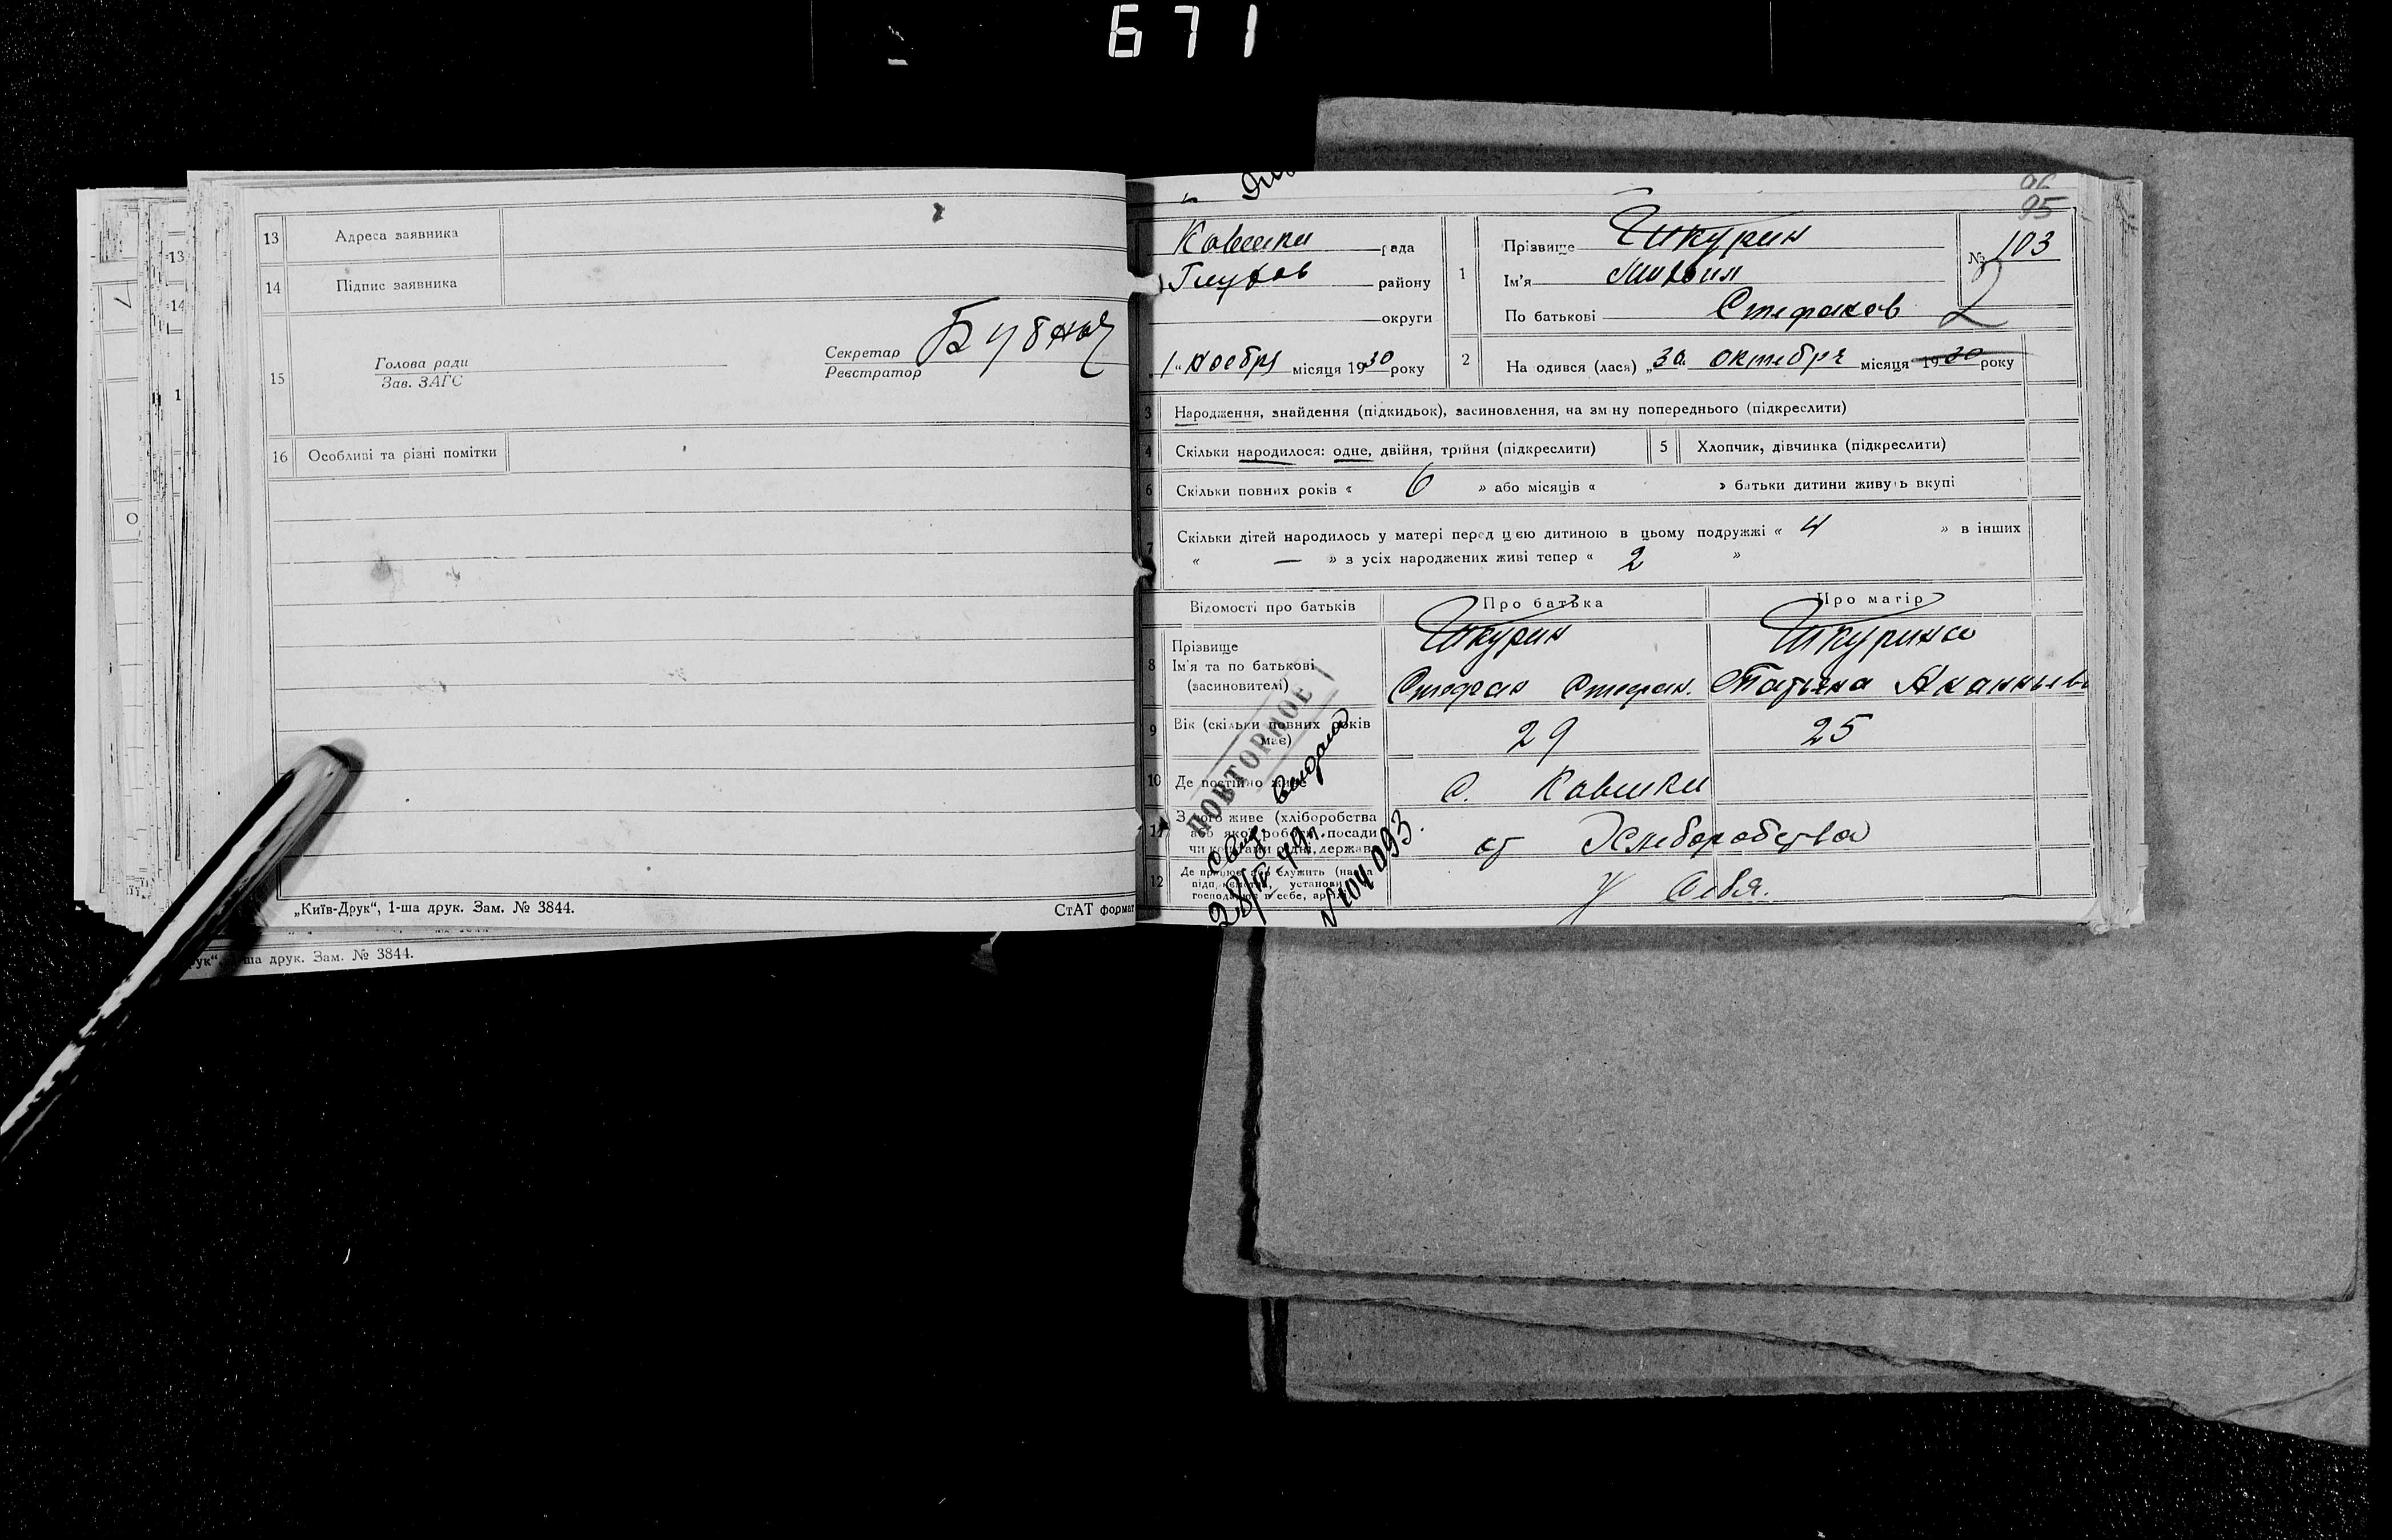 671
13 Адреса заявника
14 Підпис заявника
15 Голова ради
Зав. ЗАГС
Секретар
Реєстратор
16 Особливі та різні помітки
„Київ-Друк“, 1-ша друк. Зам. № 3844.
СтАТ формат
ша друк. Зам. № 3844.
95
Ковшики рада
Глухов району
округи
1 Прізвище Шкурин
Ім'я Михаил
По батькові Стефанов
№ 103
2
„1“ ноября місяця 1930 року
2 На одився (лася) „30“ октября місяця 1930 року
3 Народження, знайдення (підкидьок), засиновлення, на зміну попереднього (підкреслити)
4 Скільки народилося: одне, двійня, трійня (підкреслити)
5 Хлопчик, дівчинка (підкреслити)
6 Скільки повних років « 6 » або місяців « » батьки дитини живуть вкупі
7 Скільки дітей народилось у матері перед цією дитиною в цьому подружжі « 4 » в інших
« — » з усіх народжених живі тепер « 2 »
Відомості про батьків Про батька Про матір
8 Прізвище
Ім'я та по батькові
(засиновителі)
Шкурин Шкурина
Стефан Стефан. Татьяна Ананьев
9 Вік (скільки повних років має) 29 25
10 Де постійно живе с. Ковшики
11 З чого живе (хліборобства
або якої роботи, посади
от Хлеборобства
12 Де працює або служить
У себя.
ПОВТОРНОЕ
свид. выдано
28/IV 49 г.
№ 104093.